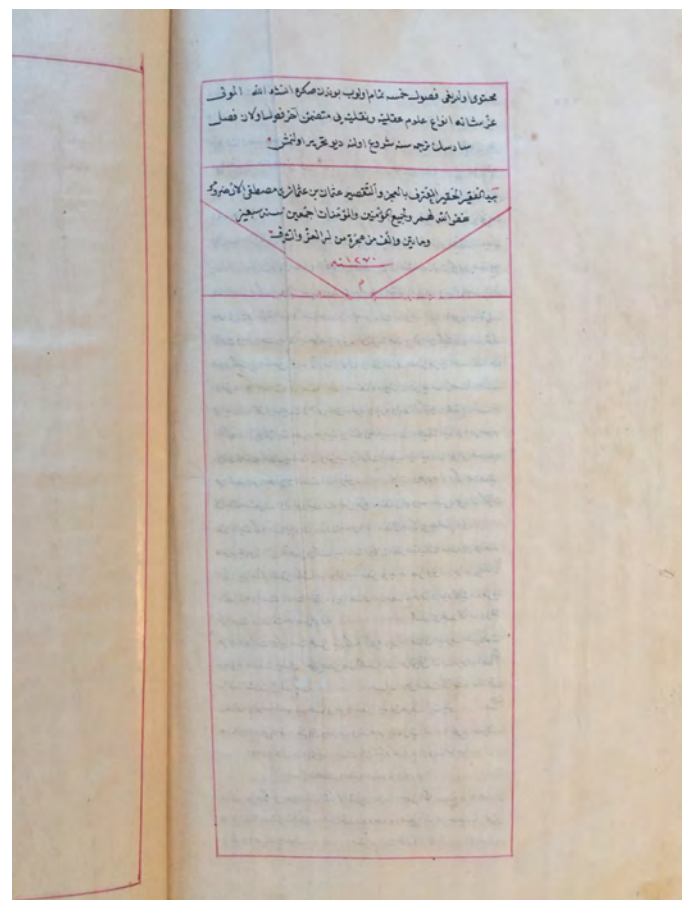 محتوى اولديغى فصول خمسه تمام اولوب بوندن صكره انشاء الله الموفق
عز شانه انواع علوم عقليه ونقليه يى متضمن آخر فصول اولان فصل
سادسك ترجمه سنه شروع اولنه ديو تحرير اولنمش
بيد الفقير الحقير المعترف بالعجز والتقصير عثمان بن عثمان بن مصطفى
غفر الله لهم ولجميع المؤمنين والمؤمنات اجمعين لسنة سبعين
ومايتين والف من هجرة من له العز والشرف
سنه ١٢٧٠
م